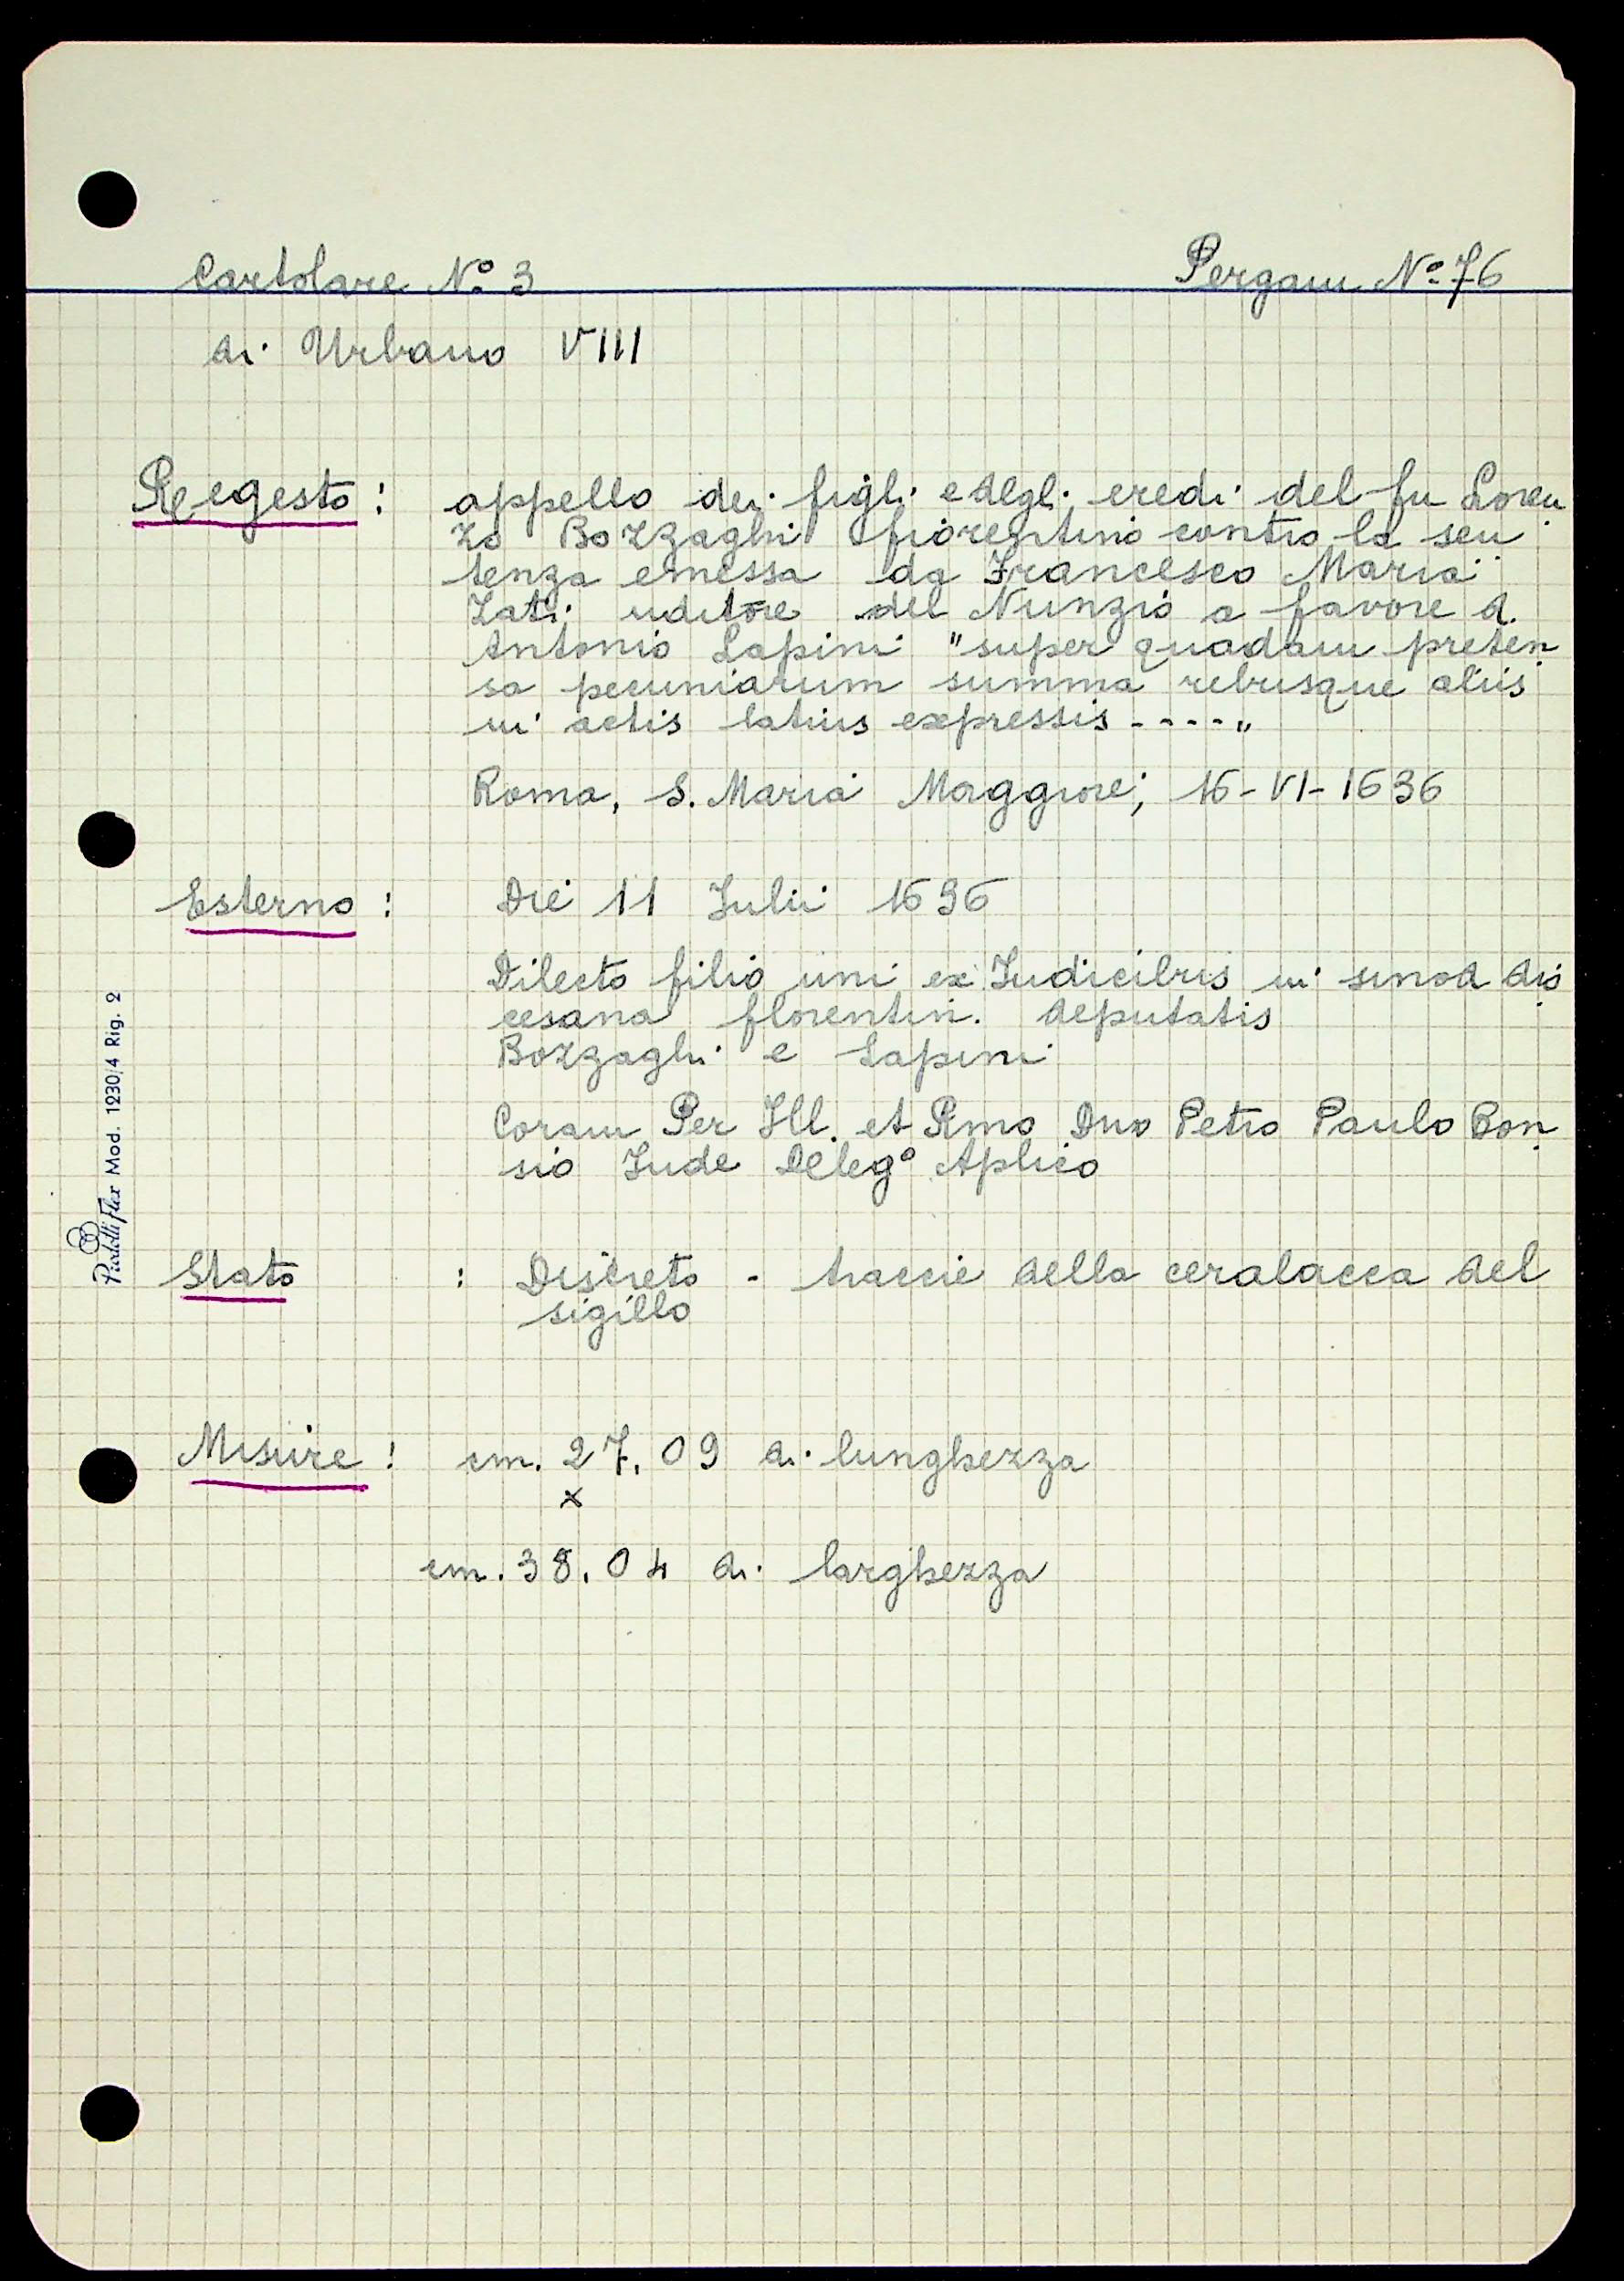 Cartolare N° 3
Pergam N° 76
di Urbano VIII
Regesto: appello dei figli e degli eredi del fu Loren
zo Bozzaghi fiorentino contro la sen
tenza emessa da Francesco Maria
Zati uditore del Nunzio a favore d.
Antonio Lapini "super quadam preten
sa pecuniarum summa rebusque aliis
in actis latius expressis ----"
Roma, S. Maria Maggiore, 16-VI-1636
Esterno: Die 11 Julii 1636
Dilecto filio uni ex Judicibus in sinod dio
cesana florentin. deputatis
Bozzaghi e Lapini
Coram Per Ill. et Rmo Dno Petro Paulo Bon
sio Jude Deleg° Aplico
Stato : Discreto - traccie della ceralacca del
sigillo
Misure: cm. 27,09 di lunghezza
x
cm. 38,04 di larghezza
Mod. 1230/4 Rig. 2